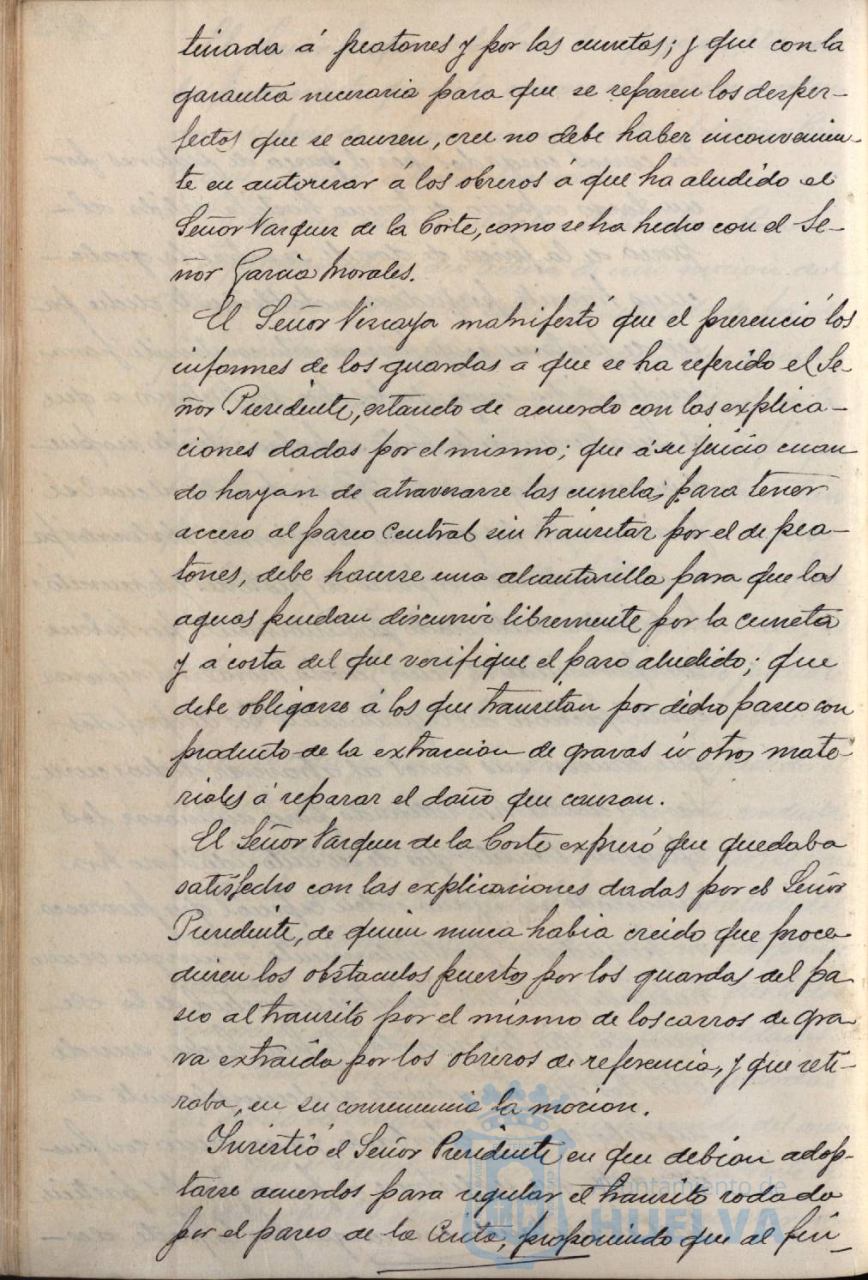 tinada á peatones y por las cunetas; y que con la
garantía necesaria para que se reparen los desper-
fectos que se causen, cree no debe haber inconvenien-
te en autorisar á los obreros á que ha aludido el
Señor Vazquez de la Corte, como se ha hecho con el Se-
ñor Garcia Morales.
El Señor Vizcaya manifestó que el presenció los
informes de los guardas á que se ha referido el Se-
ñor Presidente, estando de acuerdo con las explica-
ciones dadas por el mismo; que á su juicio cuan
do hayan de atravesarse las cunetas para tener
acceso al paseo central sin transitar por el de pea-
tones, debe hacerse una alcantarilla para que las
aguas puedan discurrir libremente por la cuneta
y á costa del que verifique el paso aludido; que
debe obligarse á los que transitan por dicho paseo con
producto de la extraccion de gravas ú otros mate
riales á reparar el daño que causan.
El Señor Vazquez de la Corte expresó que quedaba
satisfecho con las explicaciones dadas por el Señor
Presidente, de quien nunca habia creido que proce
diesen los obstaculos puestos por los guardas del pa
seo al transito por el mismo de los carros de gra
va extraída por los obreros de referencia, y que reti-
raba, en su consecuencia la mocion.
Insistió el Señor Presidente en que debian adop-
tarse acuerdos para regular el transito rodado
por el paseo de la Cinta, proponiendo que al fin-
Ayuntamiento de
HUELVA